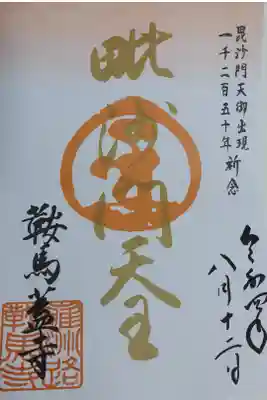 毘沙門天御出現
一千二百五十年祈念
令和四年
八月十二日
毗沙門天王
鞍馬蓋寺